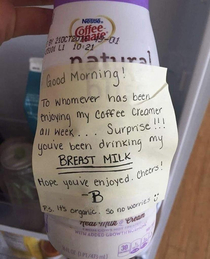 Nestle
Coffee
mate
10:21
natural
Good Morning!
To whomever has been
enjoying my coffee creamer
all week.... Surprise!!!
you've been drinking my
BREAST MILK
Hope you've enjoyed. Cheers!
-B
P.S. It's organic. So no worries